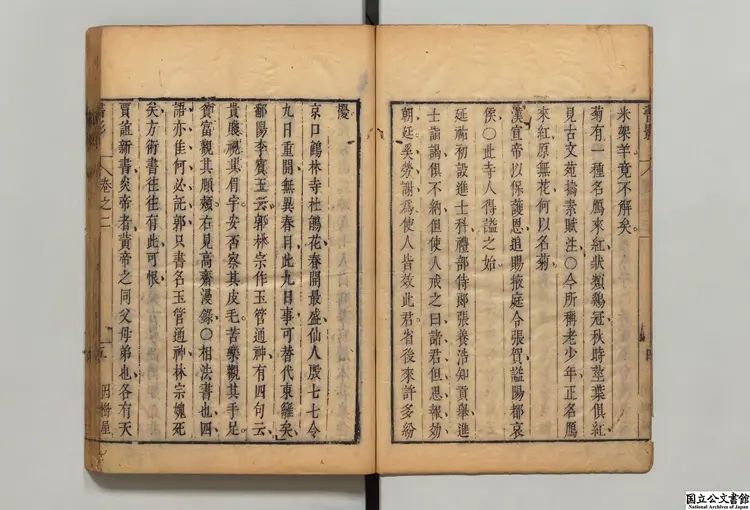 米架羊竟不解矣。
菊有一種名鴈來紅狀類鷄冠秋時莖葉俱紅
見古文苑擣素賦注〇今所稱老少年正名鴈
來紅原無花何以名菊
漢宣帝以保護恩追賜掖庭令張賀謚陽都哀
侯〇此寺人得謚之始
延祐初設進士科禮部侍郎張養浩知貢舉進
士詣謁俱不納但使人戒之曰諸君但思報効
朝廷奚勞謝爲使人皆效此君省後來許多紛
慶
京口鶴林寺杜鵑花春開最盛仙人殷七七令
九日重開無異春日此九日事可替代東籬矣
鄱陽李賓王云郭林宗作玉管通神有四句云
貴賤視其眉宇安否察其皮毛苦樂觀其手足
貧富觀其頤頰右見高齋漫錄〇相法書也四
語亦佳何必託郭只書名玉管通神林宗媿死
矣方術書往往有此可恨
賈誼新書炎帝者黃帝之同父母弟也各有天
書影
卷之二
五
因樹屋
国立公文書館
National Archives of Japan